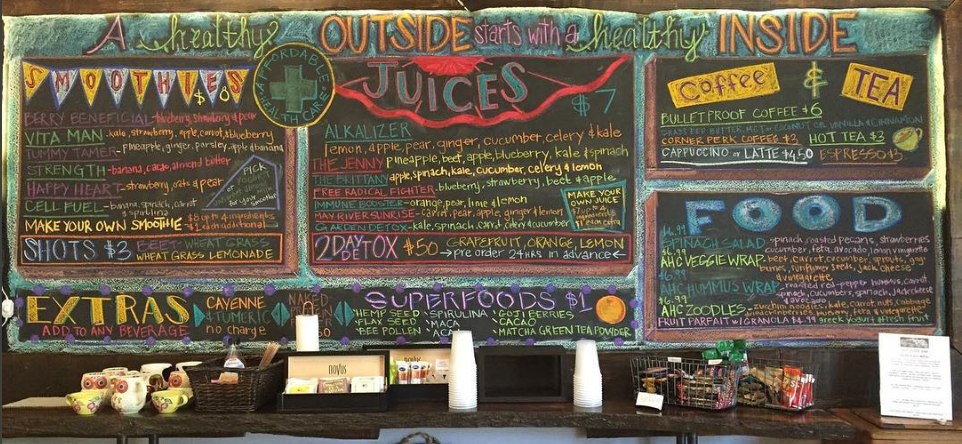 A healthy OUTSIDE starts with a healthy INSIDE
SMOOTHIES
$8
AFFORDABLE HEALTH CARE
BERRY BENEFICIAL-blueberry, strawberry & pear
VITA MAN-kale, strawberry, apple, carrot & blueberry
TUMMY TAMER-pineapple, ginger, parsley, apple & banana
STRENGTH-banana, cacao, almond butter
HAPPY HEART-strawberry, oats & pear
CELL FUEL-banana, spinach, carrot
& spirulina
PICK
MAKE YOUR OWN SMOOTHIE
SHOTS $3
BEET-WHEAT GRASS
WHEAT GRASS LEMONADE
JUICES
$7
ALKALIZER
lemon, apple, pear, ginger, cucumber, celery & kale
THE JENNY pineapple, beet, apple, blueberry, kale & spinach
THE BRITTANY apple, spinach, kale, cucumber, celery & lemon
FREE RADICAL FIGHTER-blueberry, strawberry, beet & apple
IMMUNE BOOSTER-orange, pear, lime & lemon
MAY RIVER SUNRISE-carrot, pear, apple, ginger & lemon
GARDEN DETOX-kale, spinach, carrot, celery & cucumber
MAKE YOUR
OWN JUICE
2 DAY TOX $50
GRAPEFRUIT, ORANGE, LEMON
→pre order 24 HRS in advance←
Coffee & TEA
BULLETPROOF COFFEE $6
CORNER PERK COFFEE $3 HOT TEA $3
CAPPUCCINO or LATTE $4.50 ESPRESSO $3
FOOD
$6.99
SPINACH SALAD-spinach, roasted pecans, strawberries
cucumber, feta, avocado, lemon vinaigrette
AHC VEGGIE WRAP-beet, carrot, cucumber, sprouts,
sunflower seeds, jack cheese
& vinaigrette
$6.99
AHC HUMMUS WRAP-roasted red-pepper hummus, carrot
spinach, cucumber, spinach, jack cheese
& avocado
$6.99
AHC ZOODLES-
FRUIT PARFAIT w/ GRANOLA $4.99 greek yogurt & fresh fruit
EXTRAS
ADD TO ANY BEVERAGE
CAYENNE
& TUMERIC
no charge
NAKED
SUPERFOODS $1
•HEMP SEED
•FLAX SEED
•BEE POLLEN
•SPIRULINA
•MACA
•GOJI BERRIES
•CACAO
•MATCHA GREEN TEA POWDER
novus